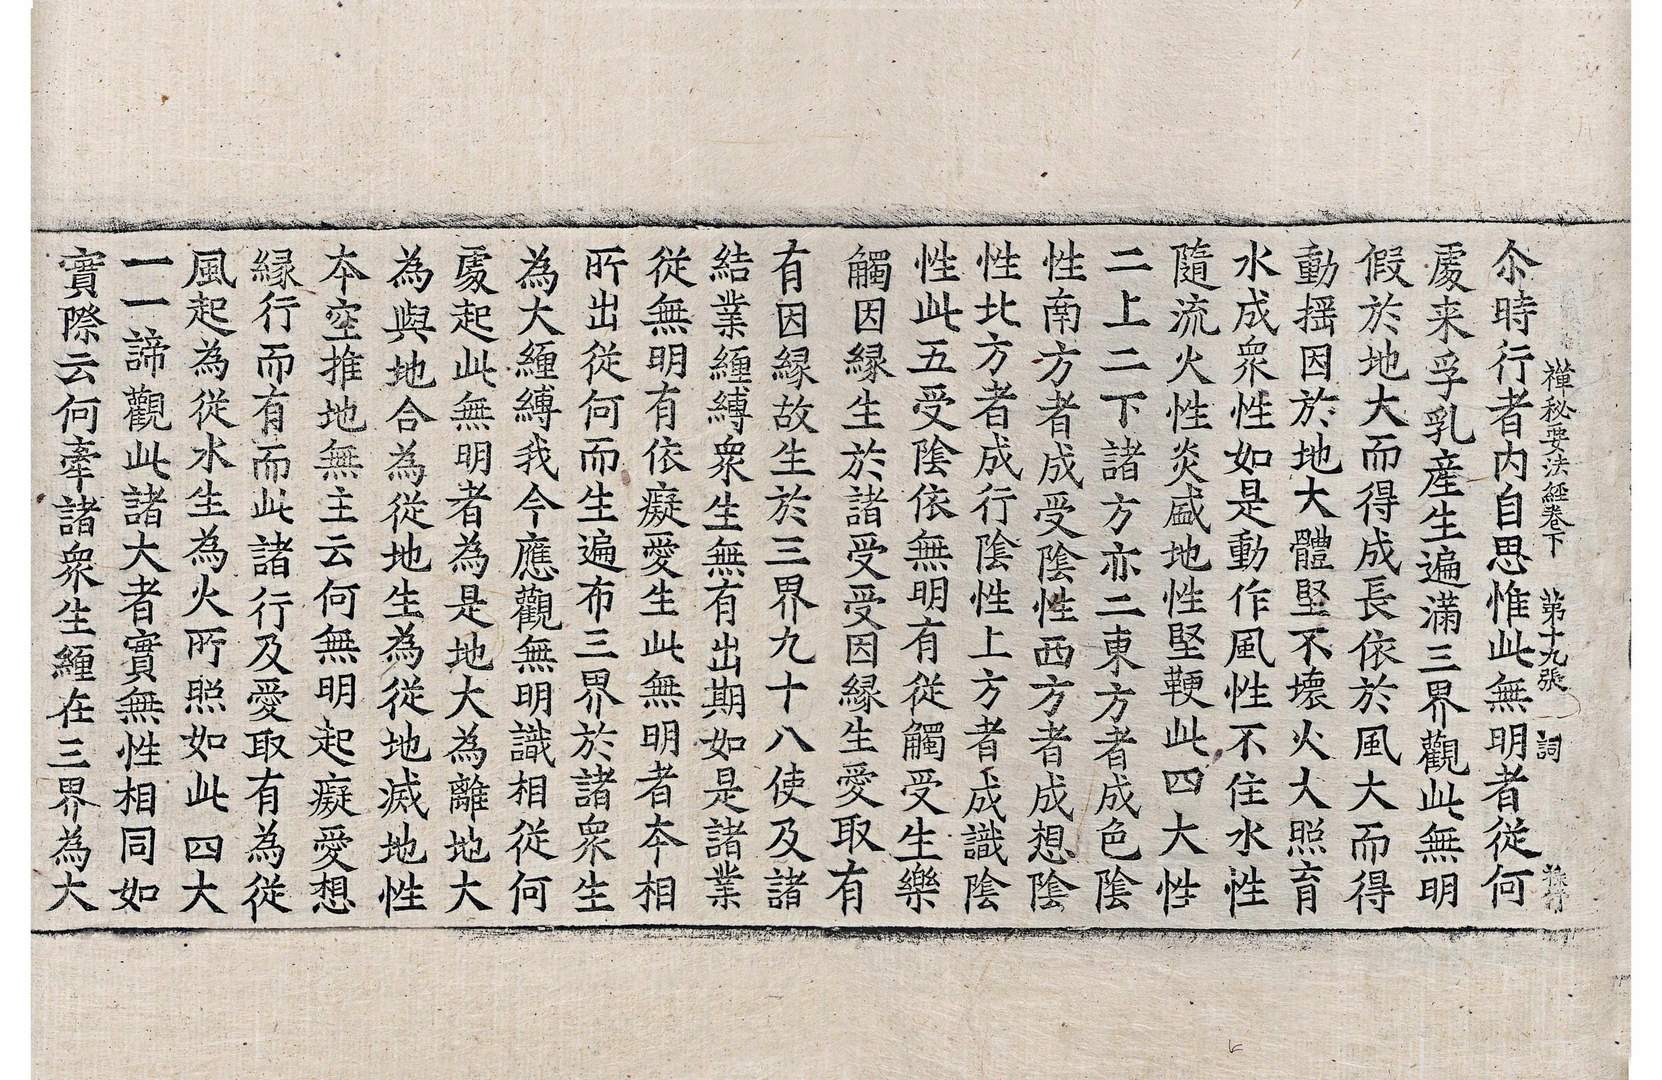 禪秘要法經卷下 第十九張 詞
尒時行者内自思惟此無明者從何
處来孚乳產生遍滿三界觀此無明
假於地大而得成長依於風大而得
動揺因於地大體堅不壞火大照育
水成衆性如是動作風性不住水性
隨流火性炎盛地性堅鞕此四大性
二上二下諸方亦二東方者成色陰
性南方者成受陰性西方者成想陰
性北方者成行陰性上方者成識陰
性此五受陰依無明有從觸受生樂
觸因縁生於諸受受因縁生愛取有
有因縁故生於三界九十八使及諸
結業纏縛衆生無有出期如是諸業
從無明有依癡愛生此無明者本相
所出從何而生遍布三界於諸衆生
為大纏縛我今應觀無明識相從何
處起此無明者為是地大為離地大
為與地合為從地生為從地滅地性
本空推地無主云何無明起癡愛想
縁行而有而此諸行及愛取有為從
風起為從水生為火所照如此四大
一一諦觀此諸大者實無性相同如
實際云何牽諸衆生纏在三界為大